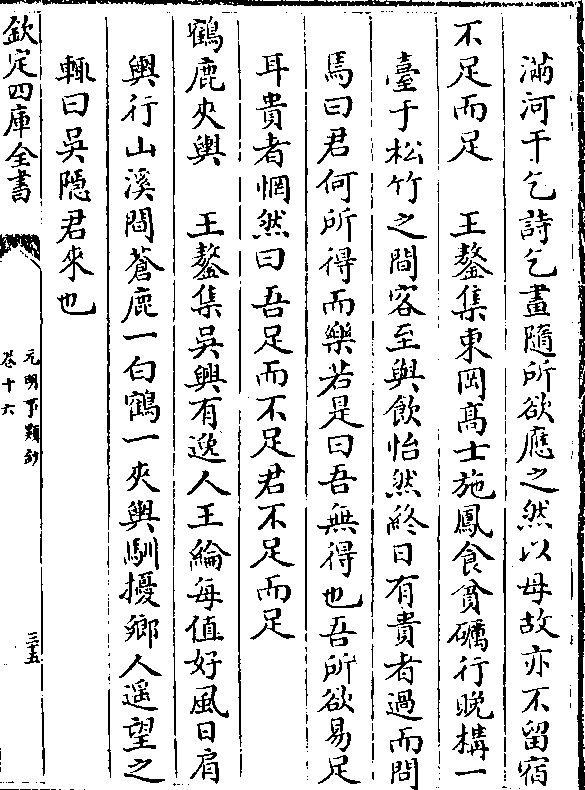 滿河干乞詩乞畫隨所欲應之然以母故亦不留宿
不足而足　王鏊集東岡髙士施鳳食貧礪行晚構一
臺于松竹之間客至與飲怡然終日有貴者過而問
焉曰君何所得而樂若是曰吾無得也吾所欲易足
耳貴者惘然曰吾足而不足君不足而足
鶴鹿夾輿　王鏊集吳興有逸人王綸每值好風日肩
輿行山溪間蒼鹿一白鶴一夾輿馴擾鄉人遥望之
輒曰吳隱君來也
欽定四庫全書
元明事類鈔
卷十六
三五